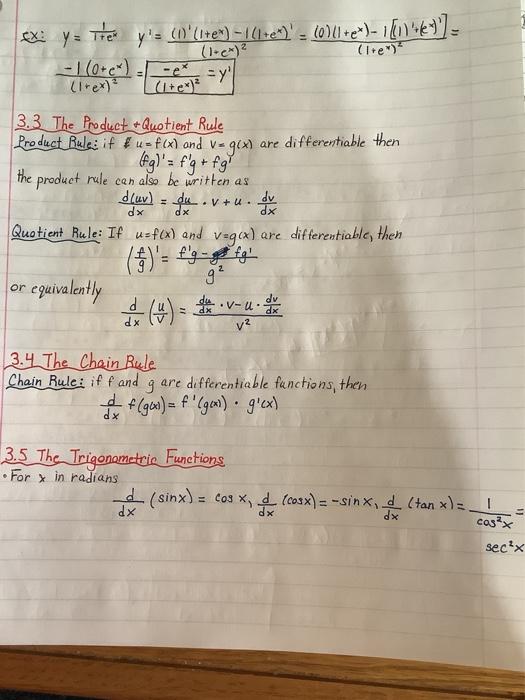 Ex: y = 1/(1+eˣ) y' = ((1)'(1+eˣ) - 1(1+eˣ)')/(1+eˣ)² = ((0)(1+eˣ) - 1[(1)'+(eˣ)'])/(1+eˣ)² =
(-1(0+eˣ))/(1+eˣ)² = -eˣ/(1+eˣ)² = y'
3.3 The Product + Quotient Rule
Product Rule: if u=f(x) and v=g(x) are differentiable then
(fg)' = f'g + fg'
the product rule can also be written as
d(uv)/dx = du/dx · v + u · dv/dx
Quotient Rule: If u=f(x) and v=g(x) are differentiable, then
(f/g)' = (f'g - fg')/g²
or equivalently
d/dx (u/v) = (du/dx · v - u · dv/dx)/v²
3.4 The Chain Rule
Chain Rule: if f and g are differentiable functions, then
d/dx f(g(x)) = f'(g(x)) · g'(x)
3.5 The Trigonometric Functions
• For x in radians
d/dx (sinx) = cos x, d/dx (cosx) = -sin x, d/dx (tan x) = 1/cos²x =
sec²x